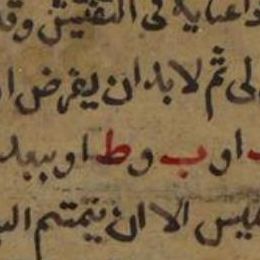 واعبايه فى التفتيش وقد
لى ثم لا بد ان يفرض ا
او ب و ط او ببعد
ليس الا ان يتمتم ال